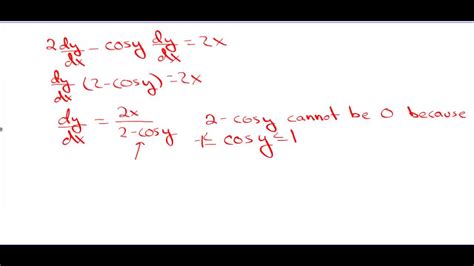 2dy/dx - cosy dy/dx = 2x
dy/dx (2-cosy) = 2x
dy/dx = 2x/2-cosy 2-cosy cannot be 0 because
-1≤ cosy ≤ 1